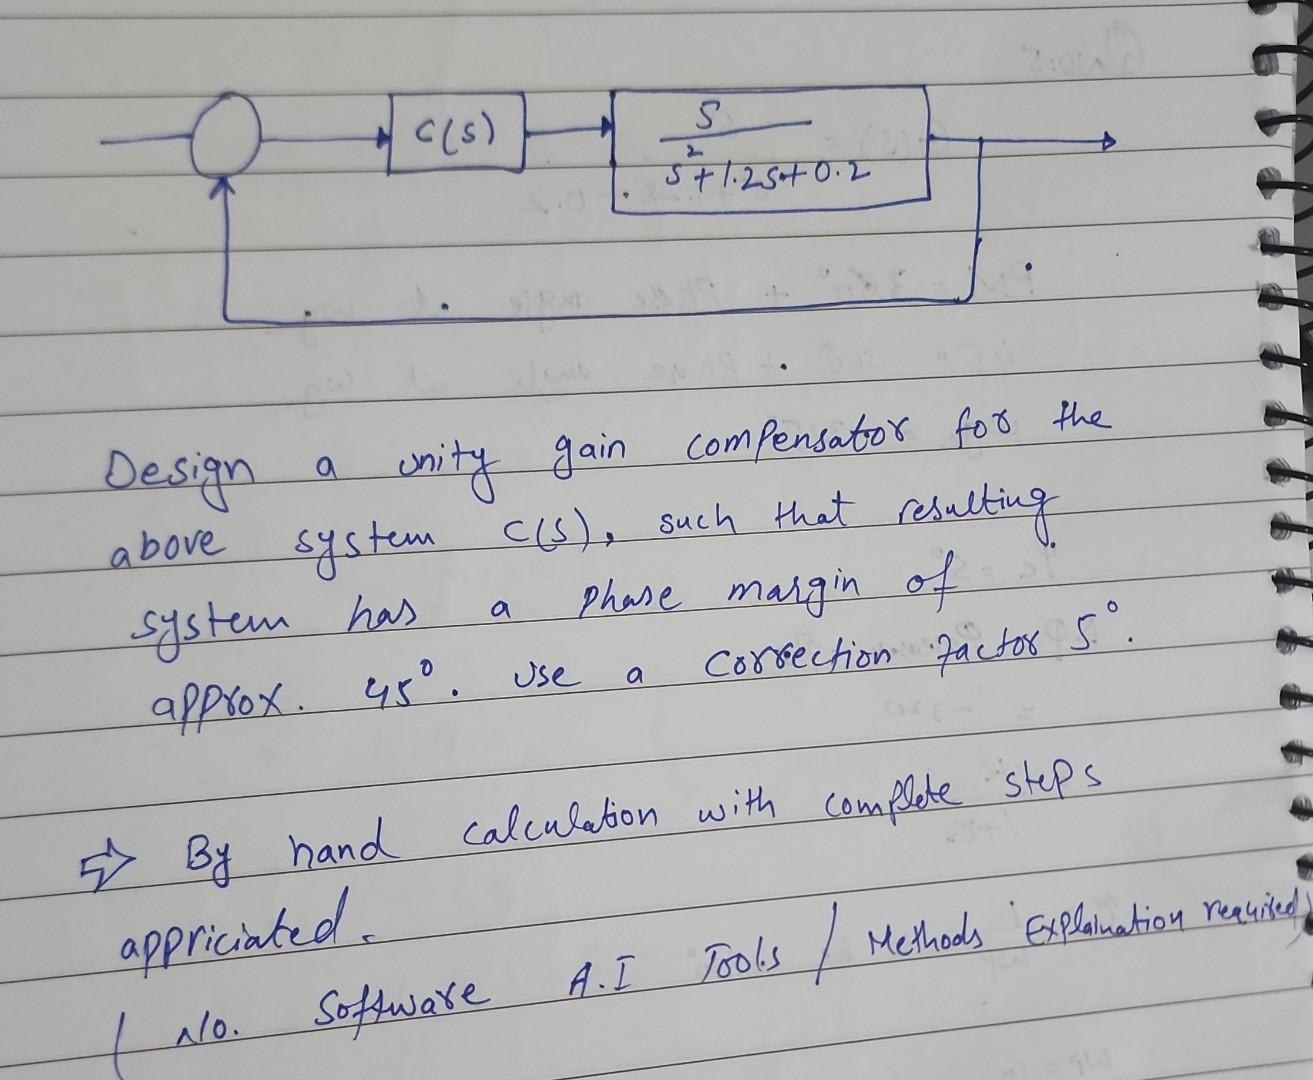 C(S)
S
S²+1.2S+0.2
Design a unity gain compensator for the
above system C(S), such that resulting
system has a phase margin of
approx. 45°. Use a correction factor 5°.
⇒ By hand calculation with complete steps
appriciated.
( No. Software A.I Tools / Methods Explaination required)